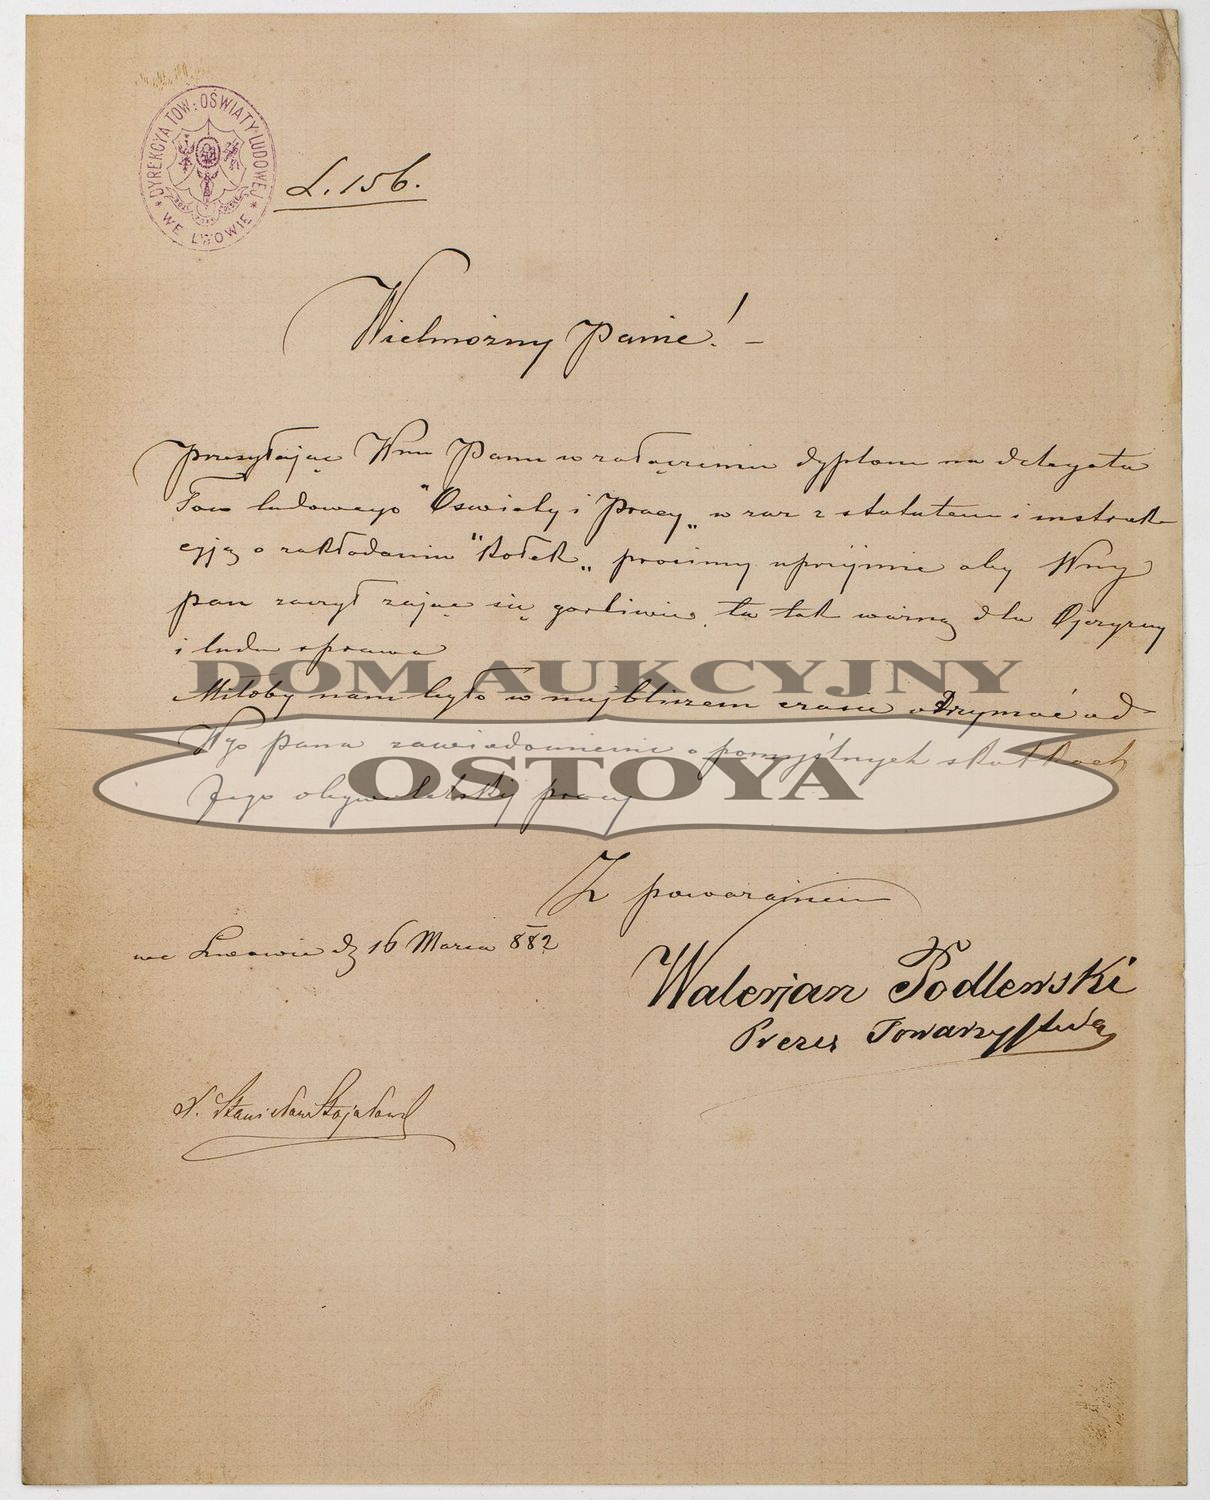 DYREKCYA TOW: OŚWIATY LUDOWEJ
* WE LWOWIE *
L. 156.
Wielmożny Panie! –
Przesyłając Wmu Panu w załączeniu dyplom na delegata
Tow ludowego "Oświaty i Pracy„ w raz z statutem i instruk
cyją o zakładaniu "Kołek„ prosimy uprzejmie aby Wny
pan raczył zająć się gorliwie tą tak ważną dla Ojczyzny
i ludu sprawą
Miłoby nam było w najbliższem czasie otrzymać od
Wgo pana zawiadomienie o pomyślnych skutkach
Jego obywatelskiej pracy
Z poważaniem
we Lwowie d 16 Marca 882
Walerjan Podlewski
Prezes Towarzystwa
X. Stanisław Stojałowsk
DOM AUKCYJNY
OSTOYA